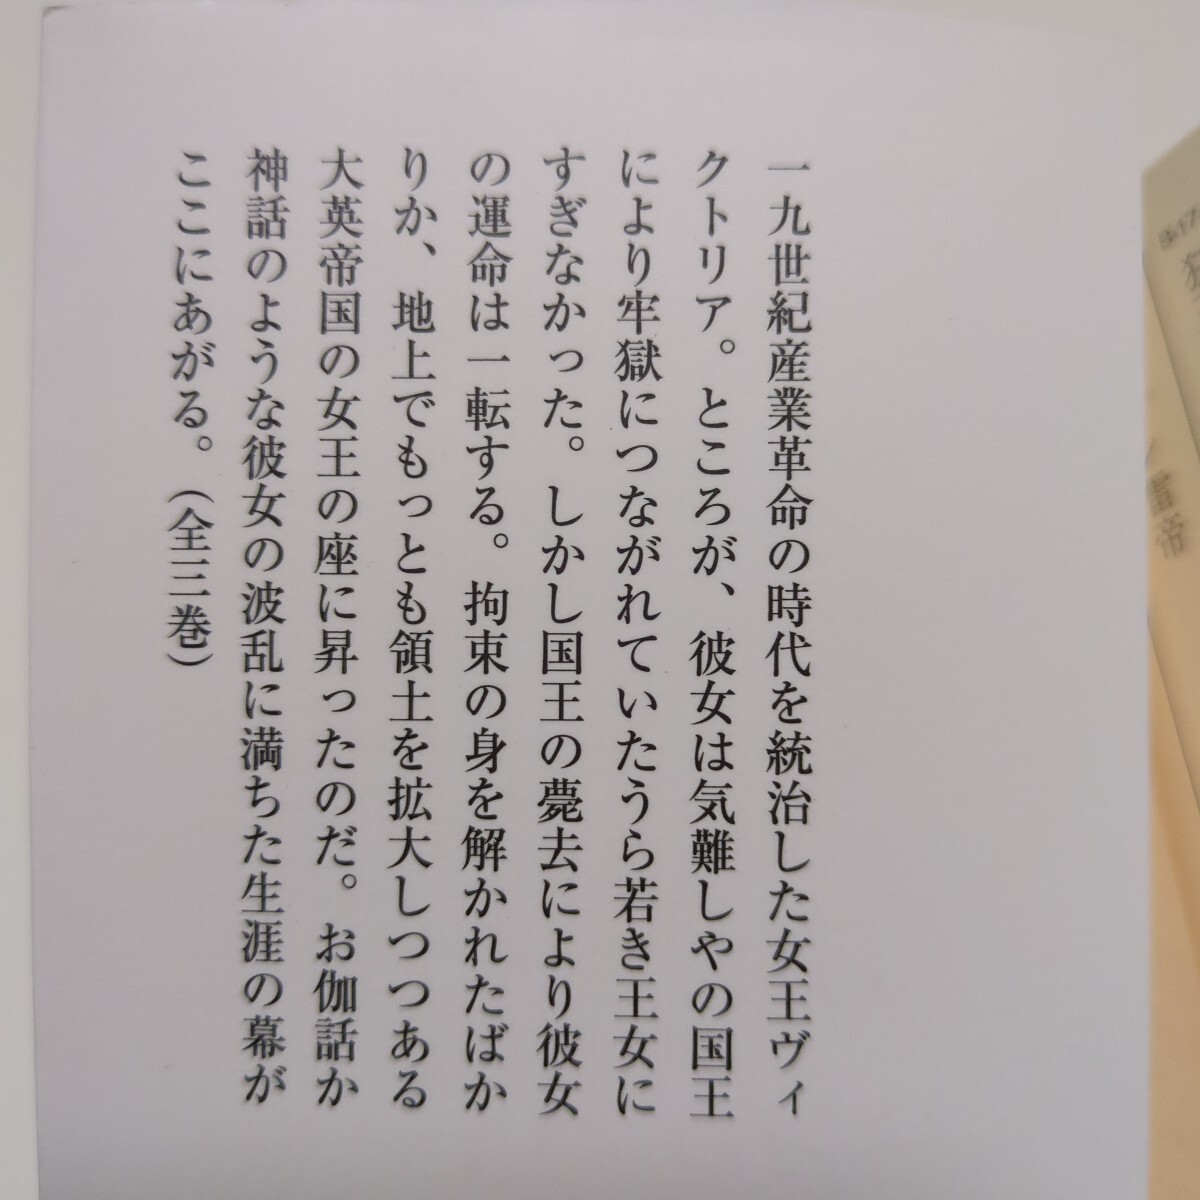 一九世紀産業革命の時代を統治した女王ヴィ
クトリア。ところが、彼女は気難しやの国王
により牢獄につながれていたうら若き王女に
すぎなかった。しかし国王の薨去により彼女
の運命は一転する。拘束の身を解かれたばか
りか、地上でもっとも領土を拡大しつつある
大英帝国の女王の座に昇ったのだ。お伽話か
神話のような彼女の波乱に満ちた生涯の幕が
ここにあがる。(全三巻)